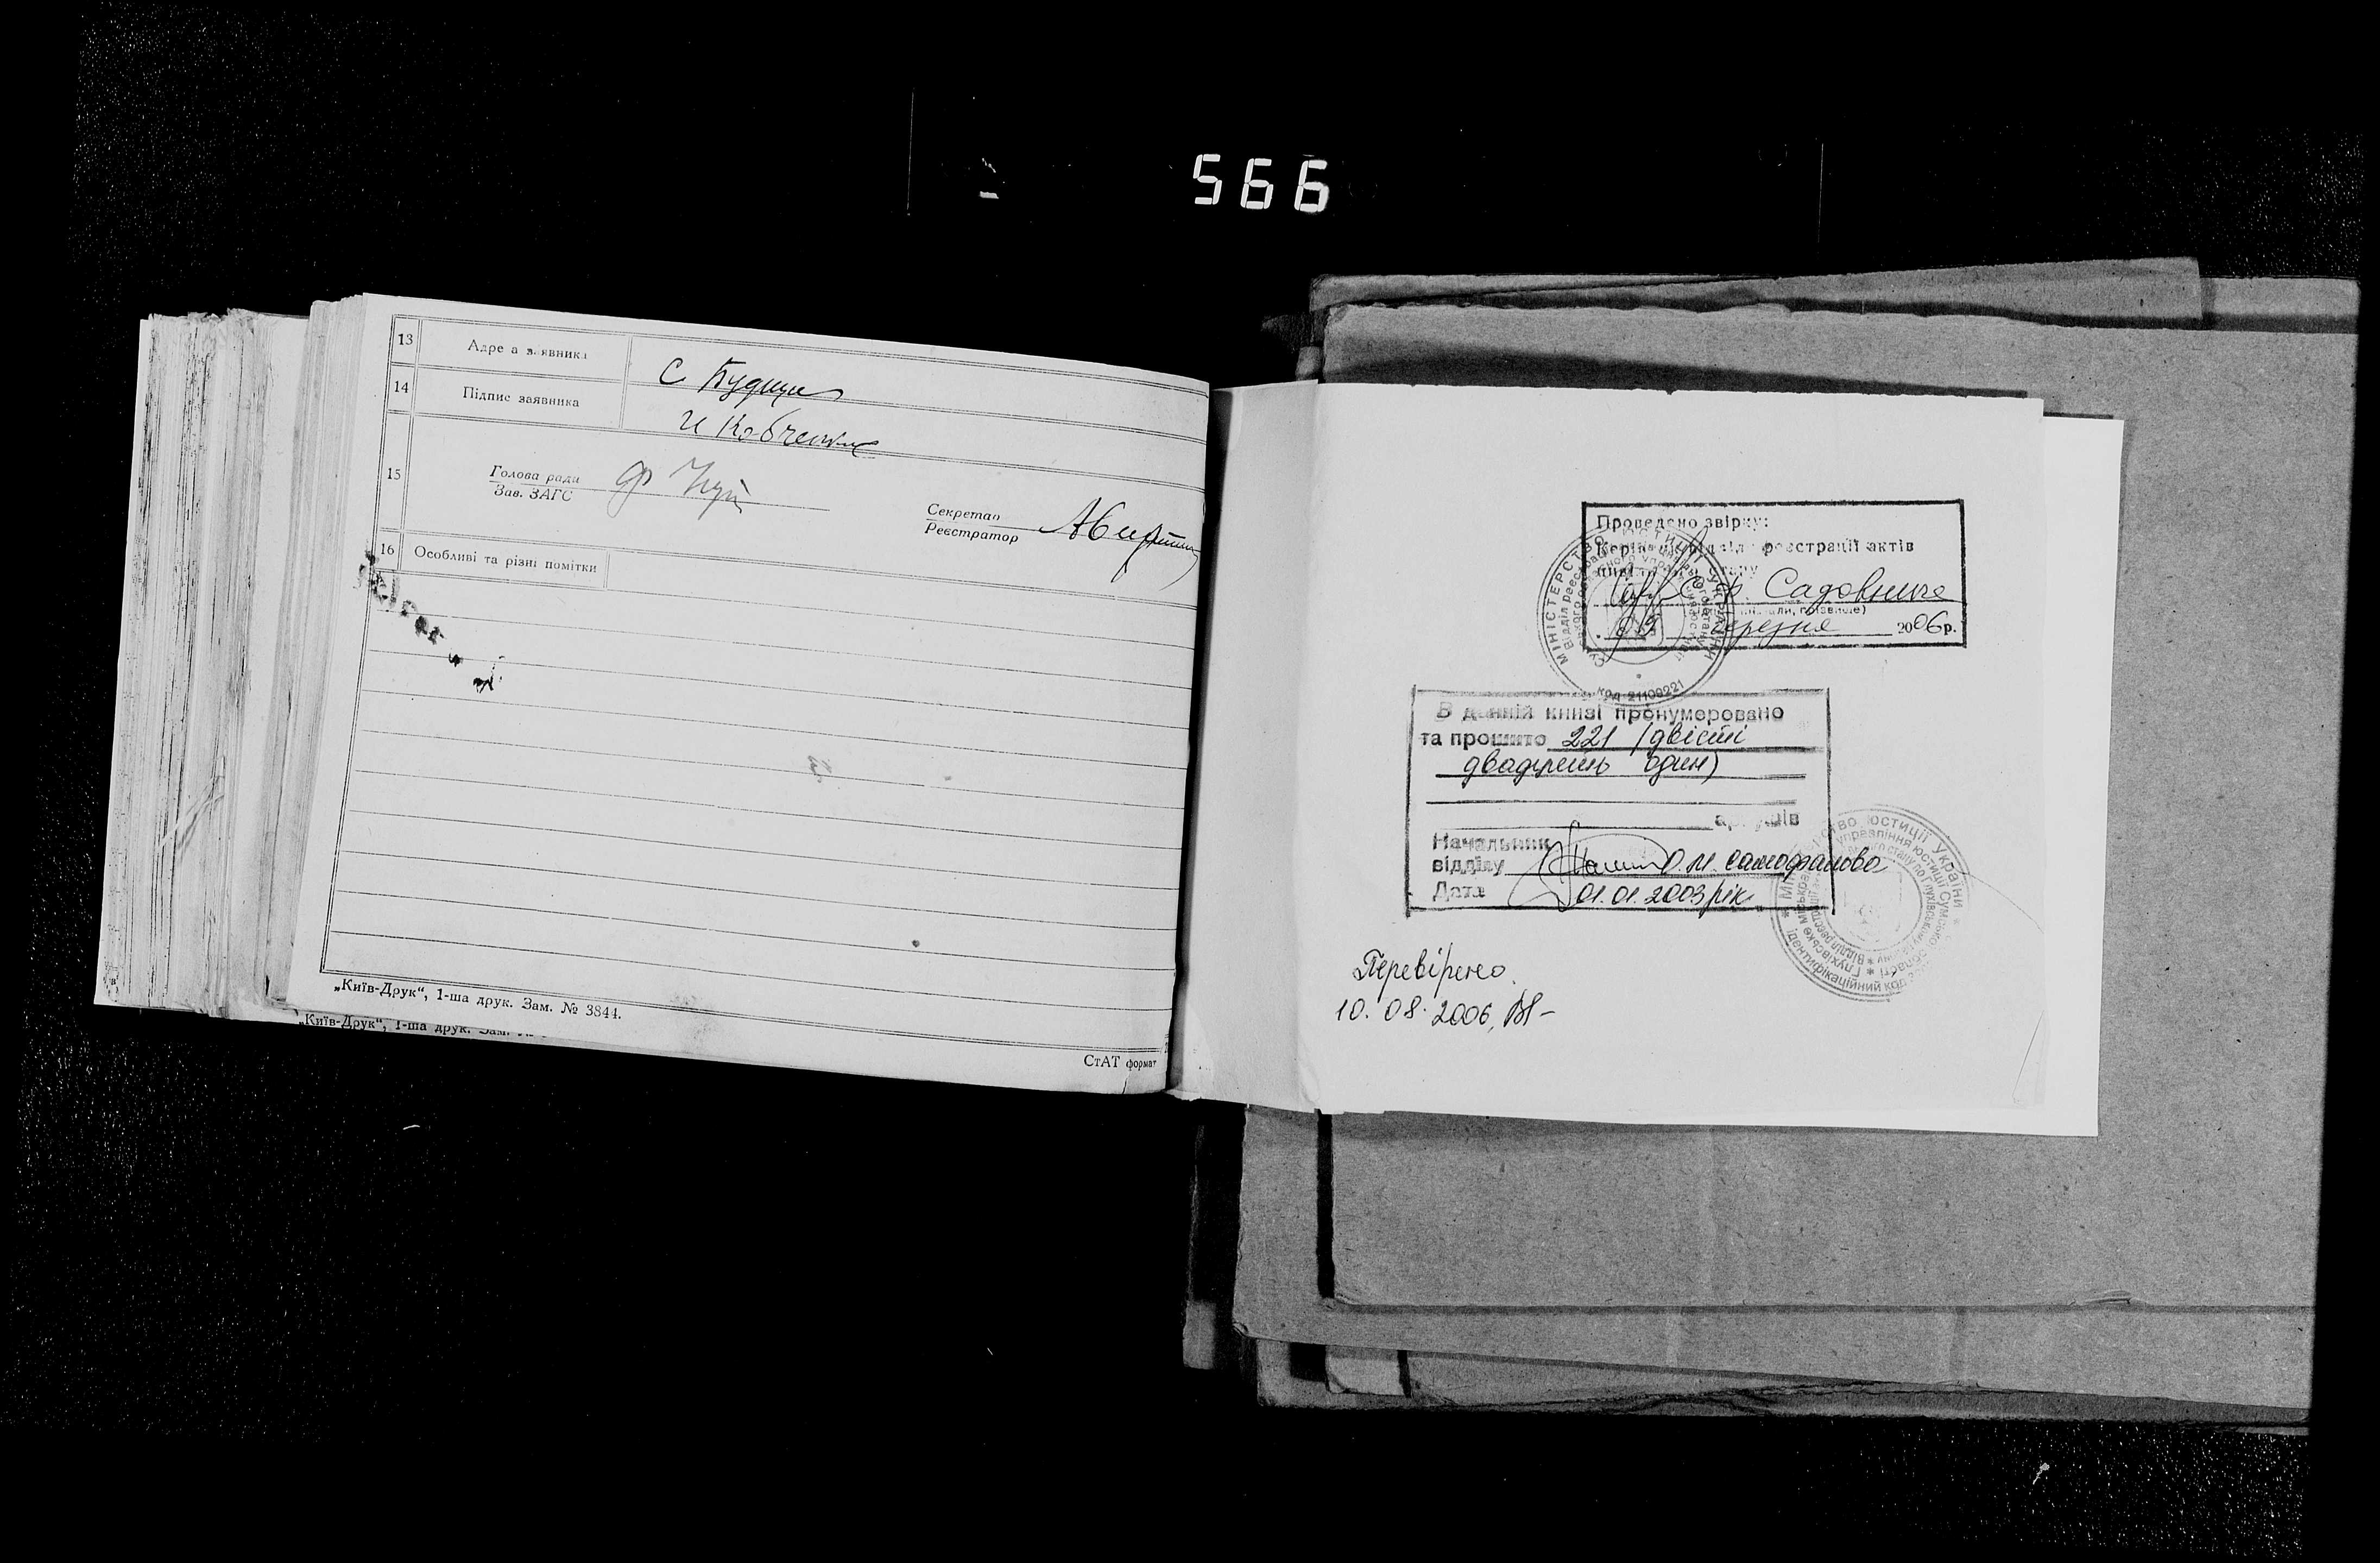 566
13 Адреса заявника
с Будищи
14 Підпис заявника
15 Голова ради
Зав. ЗАГС
Секретар
Реєстратор
16 Особливі та різні помітки
„Київ-Друк“, 1-ша друк. Зам. № 3844.
„Київ-Друк“, 1-ша друк. Зам.
СтАТ формат
Проведено звірку:
Керівник відділу реєстрації актів
цивільного стану
Садовнича
(ініціали, прізвище)
березня 2006р.
МІНІСТЕРСТВО ЮСТИЦІЇ УКРАЇНИ
код 21109221
В данній книзі пронумеровано
та прошито 221 (двісті
двадцять один)
аркушів
Начальник
відділу О.М. Самофалова
Дата 01.01.2003 рік
Міністерство юстиції України * Глухівське міськрайонне управління юстиції Сумської області * ідентифікаційний код
Перевірено.
10.08.2006,